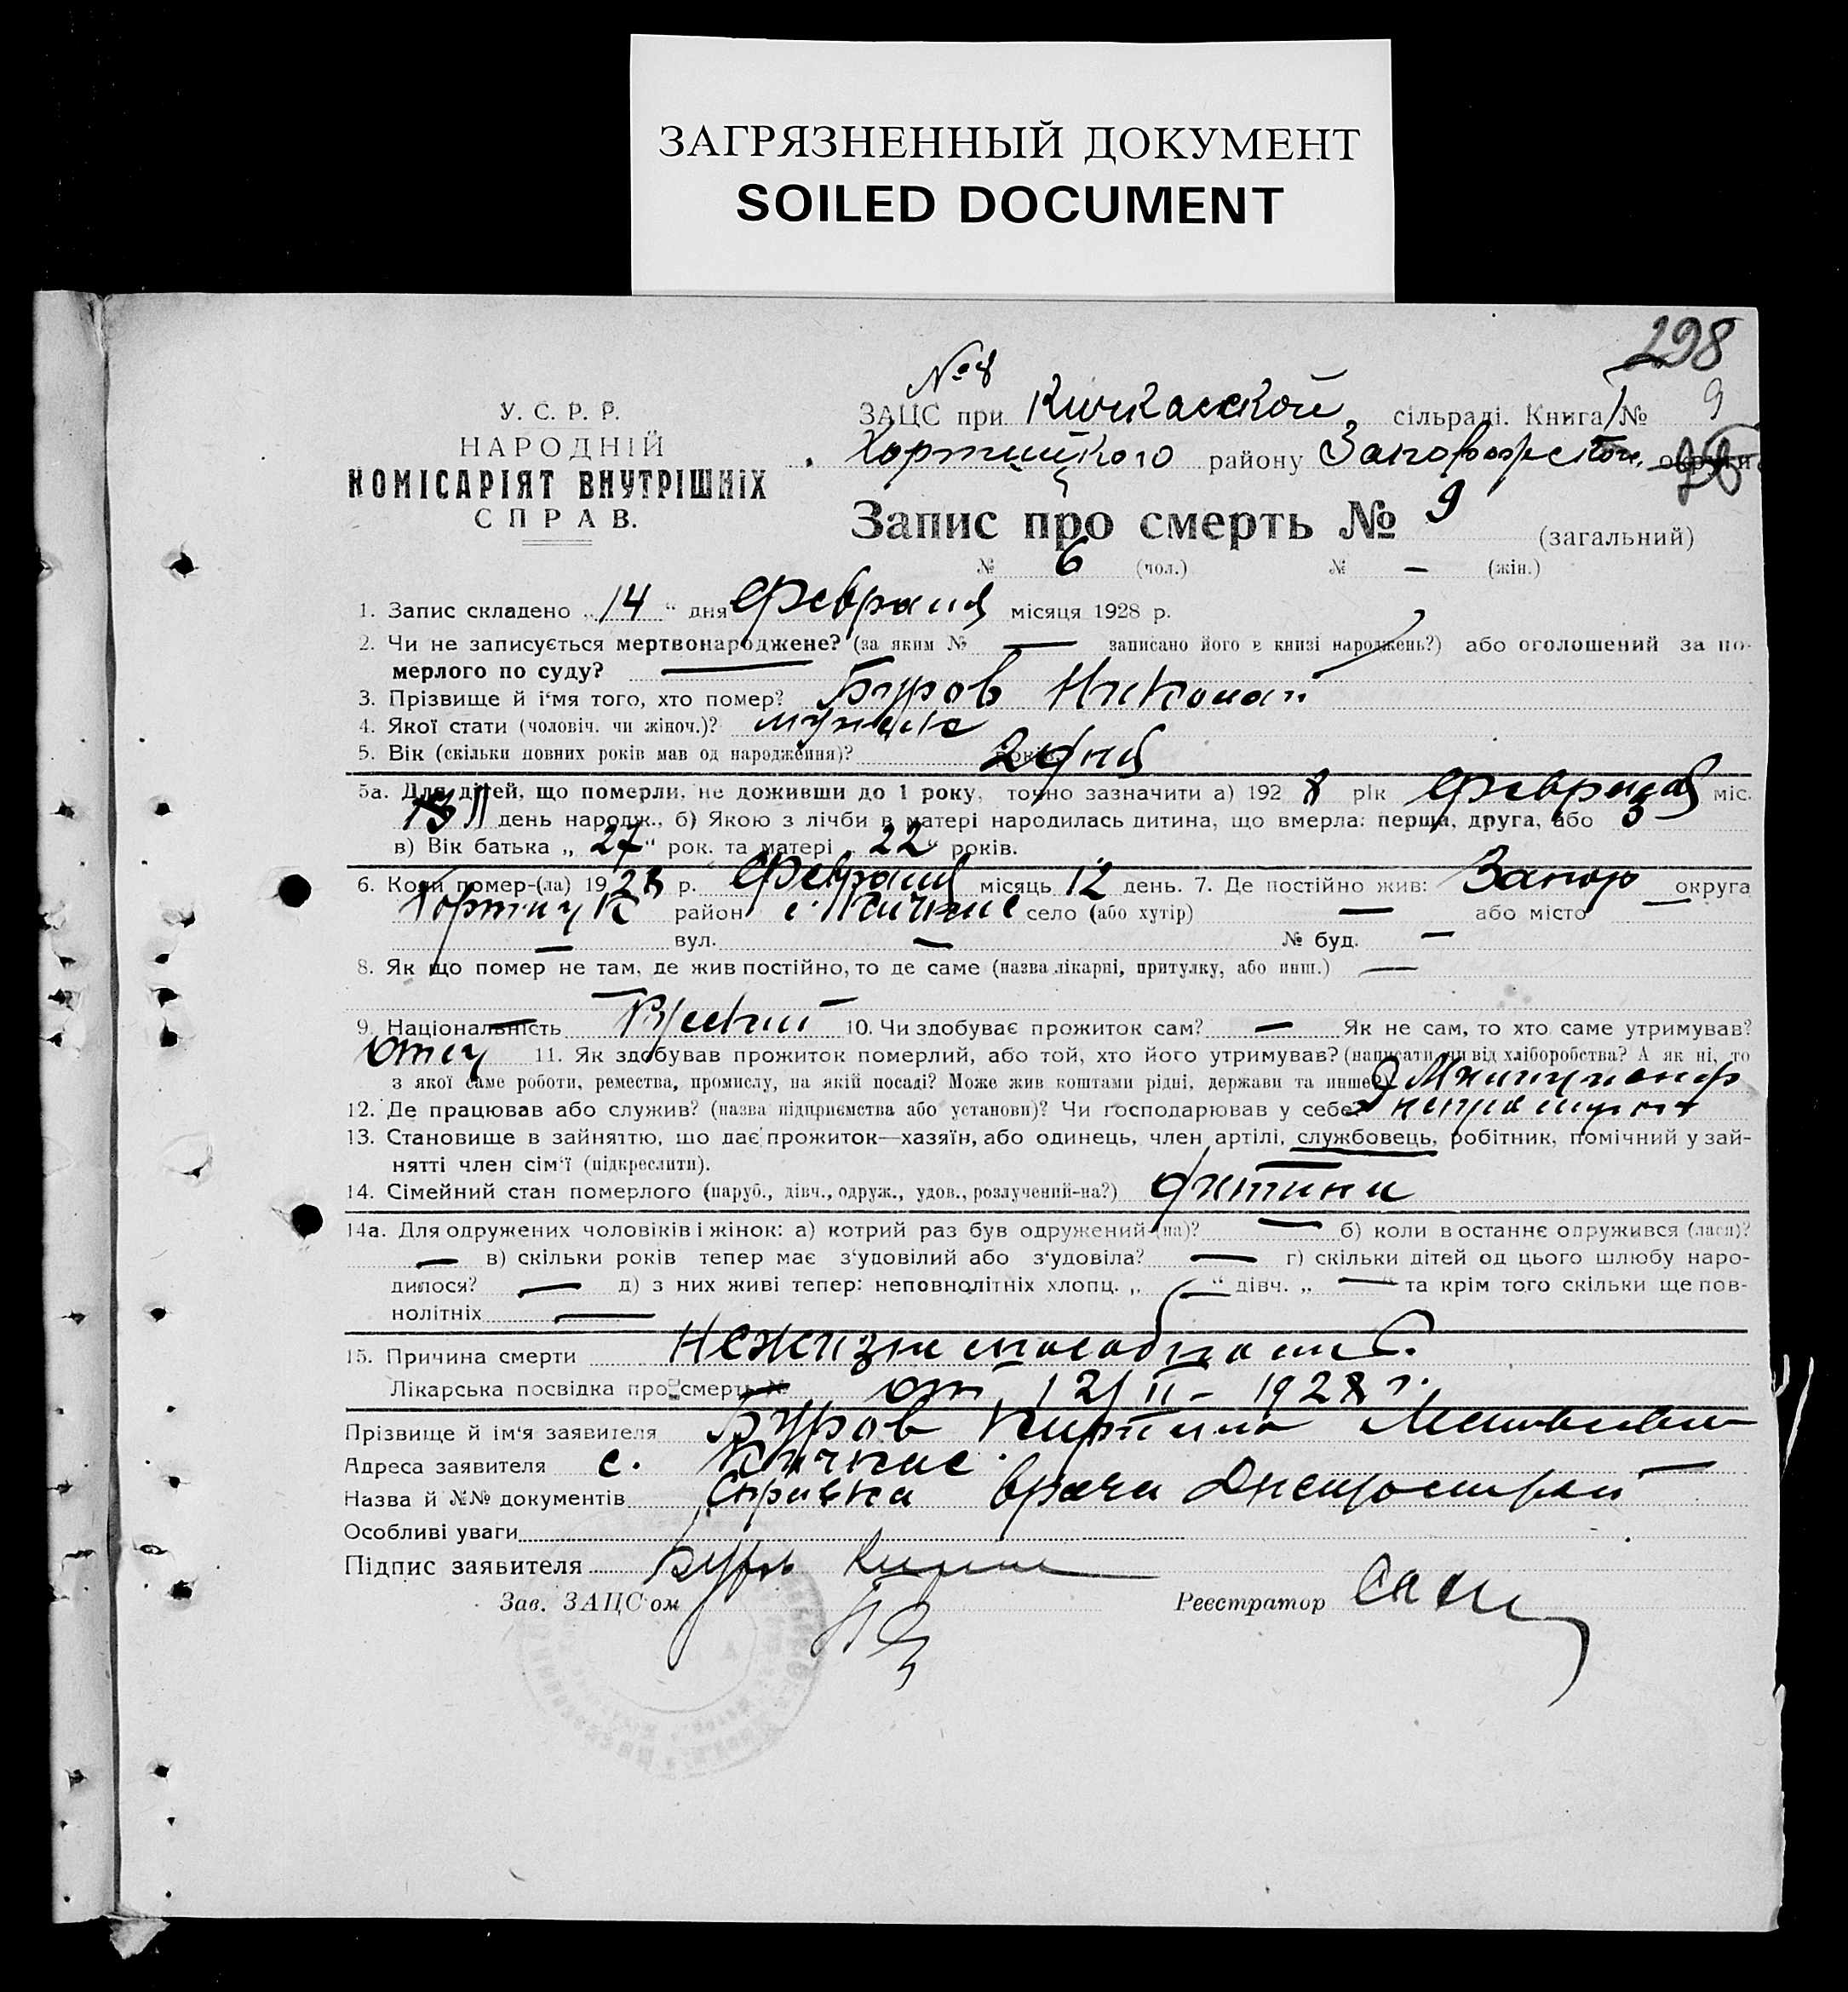 ЗАГРЯЗНЕННЫЙ ДОКУМЕНТ
SOILED DOCUMENT
298
№ 8
9
У. С. Р. Р.
НАРОДНІЙ
КОМІСАРІЯТ ВНУТРІШНІХ
СПРАВ.
ЗАЦС при Кичкасской сільраді. Книга №
Хортицкого району Запорожской округи
Запис про смерть № 9 (загальний)
№ 6 (чол.) № — (жін.)
1. Запис складено „14“ дня февраля місяця 1928 р.
2. Чи не записується мертвонароджене? (за яким № — записано його в книзі народжень?) або оголошений за по-
мерлого по суду? —
3. Прізвище й і'мя того, хто помер? Буров Николай
4. Якої стати (чоловіч. чи жіноч.)? мужск
5. Вік (скільки повних років мав од народження)? 2 дня
5а. Для дітей, що померли, не доживши до 1 року, точно зазначити а) 1928 рік февраля міс.
день народж., б) Якою з лічби в матері народилась дитина, що вмерла: перша, друга, або 3
в) Вік батька „27“ рок. та матері „22“ років.
6. Коли помер-(ла) 1928 р. февраля місяць 12 день. 7. Де постійно жив: Запор округа
Хортицк район с. Кичкас село (або хутір) — або місто
— вул. — № буд. —
8. Як що помер не там, де жив постійно, то де саме (назва лікарні, притулку, або инш.) —
9. Національність Русский 10. Чи здобуває прожиток сам? — Як не сам, то хто саме утримував?
отец 11. Як здобував прожиток померлий, або той, хто його утримував? (написати чи від хліборобства? А як ні, то
з якої саме роботи, ремества, промислу, на якій посаді? Може жив коштами рідні, держави та инше?)
12. Де працював або служив? (назва підприємства або установи)? Чи господарював у себе?
13. Становище в зайняттю, що дає прожиток—хазяїн, або одинець, член артілі, службовець, робітник, помічний у зай-
нятті член сім'ї (підкреслити).
14. Сімейний стан померлого (паруб., дівч., одруж., удов., розлучений-на?)
14а. Для одружених чоловіків і жінок: а) котрий раз був одружений-(на)? — б) коли в останнє одружився (лася)?
— в) скільки років тепер має з'удовілий або з'удовіла? — г) скільки дітей од цього шлюбу наро-
дилося? — д) з них живі тепер: неповнолітніх хлопц. „—“ дівч. „—“ та крім того скільки ще пов-
нолітніх —
15. Причина смерти Нежизнеспособность.
Лікарська посвідка про смерть № от 12/II - 1928 г.
Прізвище й ім'я заявителя Буров Кирилл
Адреса заявителя с. Кичкас.
Назва й №№ документів Справка врача Днепрострой
Особливі уваги
Підпис заявителя Буров
Зав. ЗАЦС'ом Реєстратор